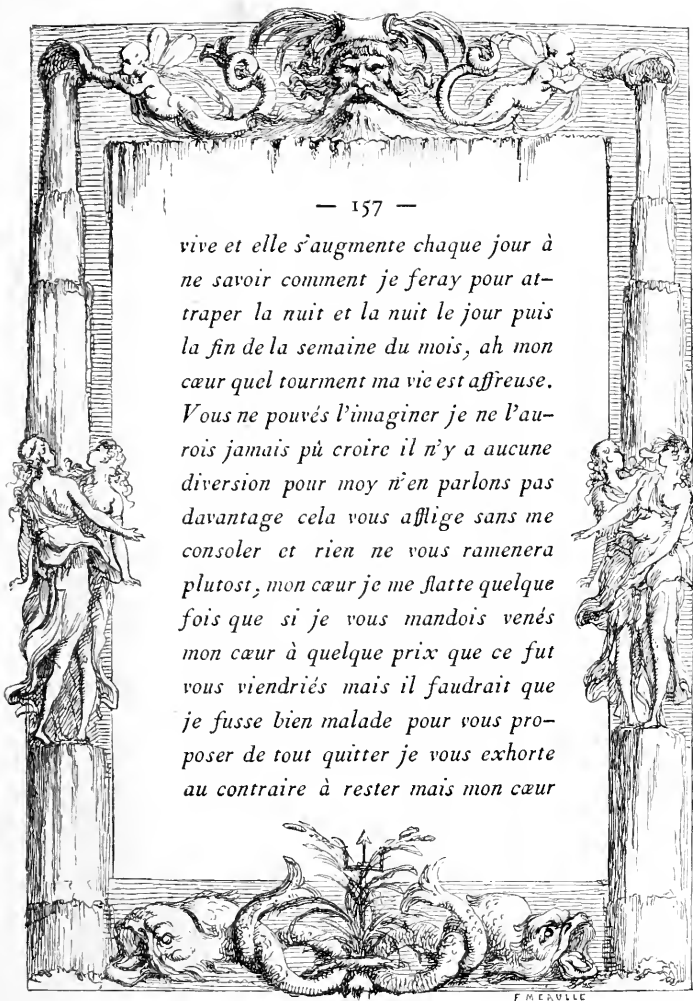 — 157 —
vive et elle s'augmente chaque jour à
ne savoir comment je feray pour at-
traper la nuit et la nuit le jour puis
la fin de la semaine du mois, ah mon
cœur quel tourment ma vie est affreuse.
Vous ne pouvés l'imaginer je ne l'au-
rois jamais pû croire il n'y a aucune
diversion pour moy n'en parlons pas
davantage cela vous afflige sans me
consoler et rien ne vous ramenera
plutost, mon cœur je me flatte quelque
fois que si je vous mandois venés
mon cœur à quelque prix que ce fut
vous viendriés mais il faudrait que
je fusse bien malade pour vous pro-
poser de tout quitter je vous exhorte
au contraire à rester mais mon cœur